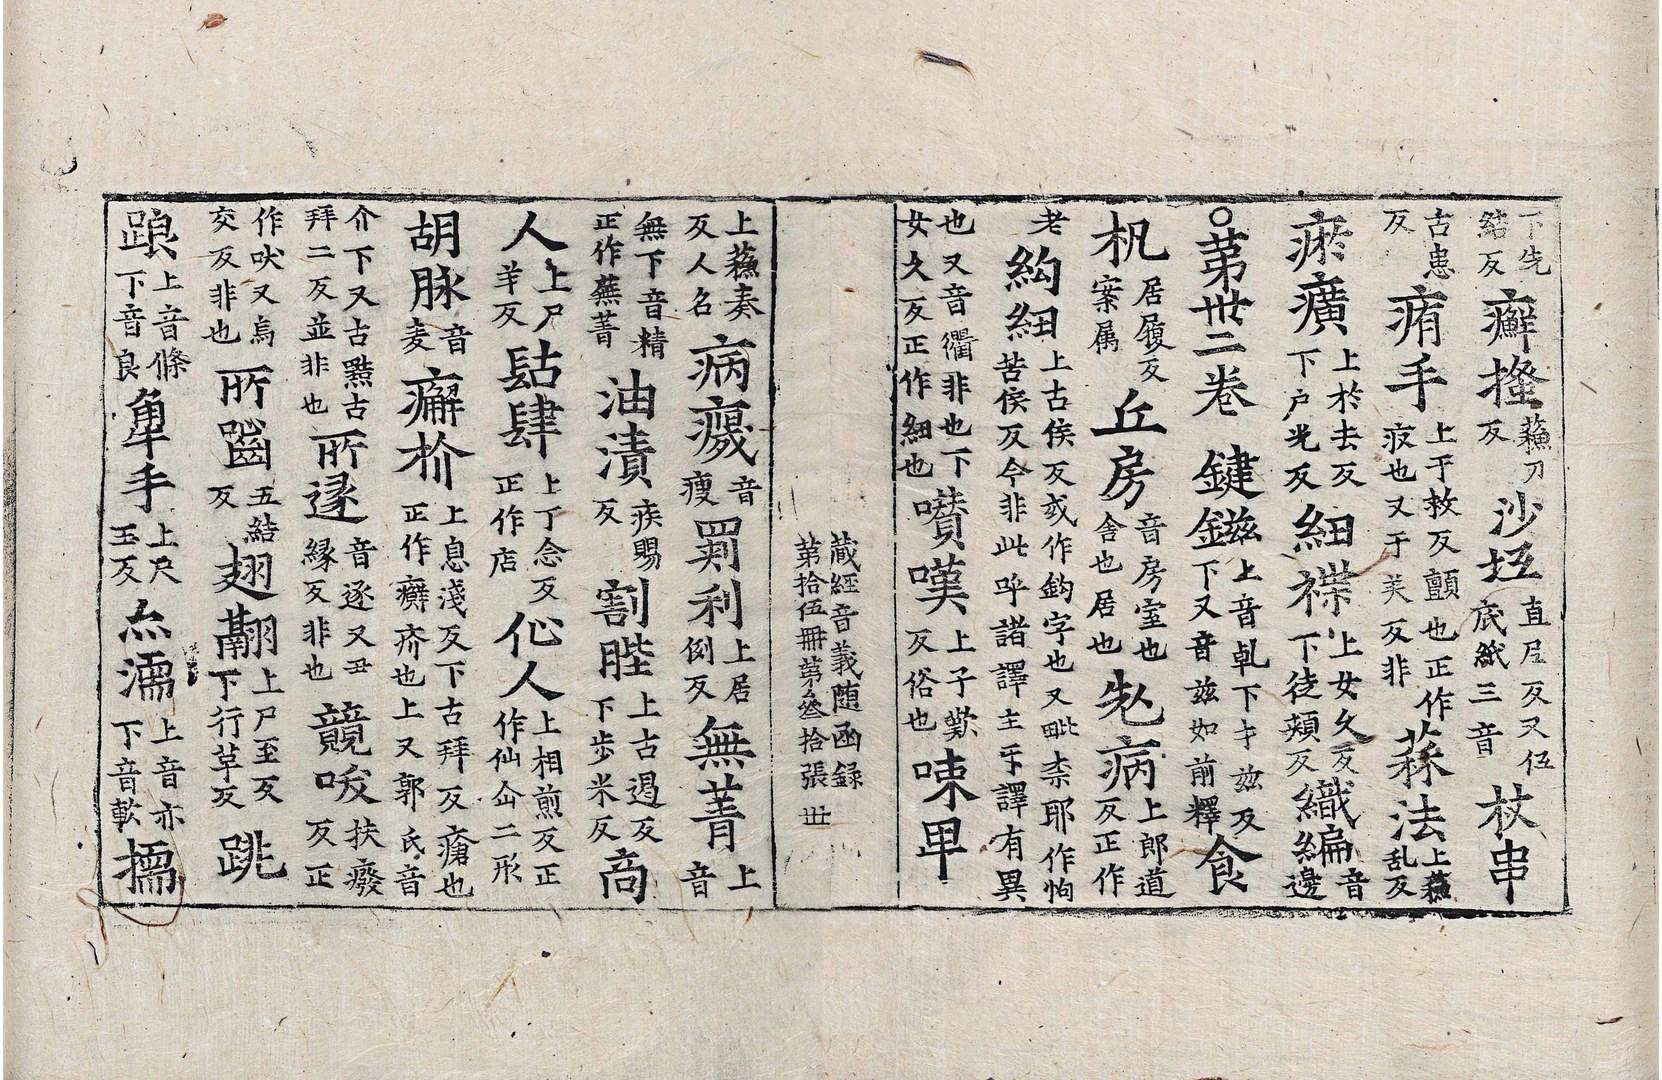 下先結反癬搔蘓刀反沙坘直尼反又伍底紙三音杖串
古患反痏手上于救反顫也正作疫也又于美反非蒜法上蘓乱反
瘀癀上於去反下户光反紐襟上女久反下徒頰反織編音邊
○苐丗二卷鍵鎡上音乹下才兹反下又音兹如前釋食
机居履反案属丘房音房室也舍也居也𠒋病上郎道反正作
老鈎紐上古侯反或作鈎字也又毗柰耶作怐苦侯反今非此呼諸譯主乎譯有異
也又音衢非也下女久反正作紐也嚽嘆上子歎反俗也唻甲
蔵經音義随函録
第拾伍冊第叅拾張 丗
上蘓奏反人名病𤸃音瘦罽利上居例反無菁上音
無下音精正作蕪菁油漬疾賜反割䏶上古遏反下步米反商
人上尸羊反䏽肆上丁念反正作店仚人上相煎反正作仙仚二形
胡脉音麦癬㾏上息淺反下古拜反瘡也正作癬疥也上又郭氏音
介下又古㸃古拜二反並非也所逐音逐又丑縁反非也競吠扶癈反正
作吠又烏交反非也所嚙五結反翅翮上尸至反下行革反跳
踉上音條下音良犎手上尺玉反𤆁濡上音亦下音軟擩